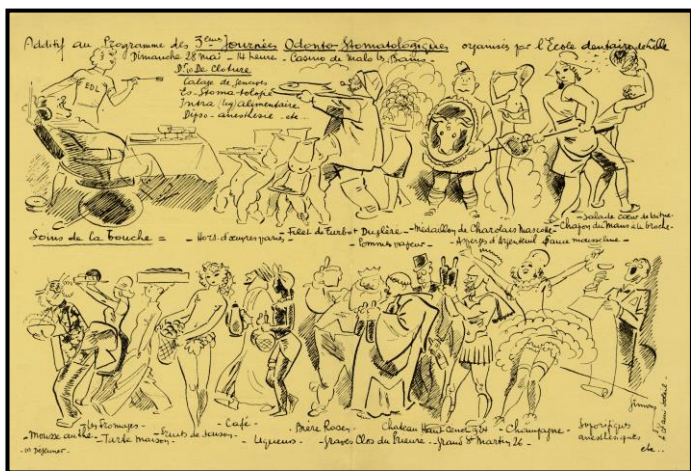 Additif au Programme des 3emes Journées Odonto-Stomatologiques organisées par l'Ecole dentaire de Lille
Dimanche 28 mai - 14 heure - Casino de Malo les Bains -
De Cloture
Calage de
Es-Stoma-
Intra alimentaire
Dipso-anesthésie - etc
EDL
Soins de la Bouche =
- Hors d'œuvres variés
- Filet de Turbot Duglère -
- Médaillon de Charolais Mascotte -
- Salade cœur de laitue
- Chapon du Mans à la broche -
Pommes vapeur -
- Asperges d'Argenteuil Sauce mousseline -
- Mousse
- Les Fromages -
- Tarte Maison -
Fruits de saison -
- Café -
Liqueurs -
Bière Rosen
- Graves Clos du Prieuré -
Chateau Haut
- Grand St Martin 26 -
- Champagne -
Soporifiques
anesthésiques
etc..